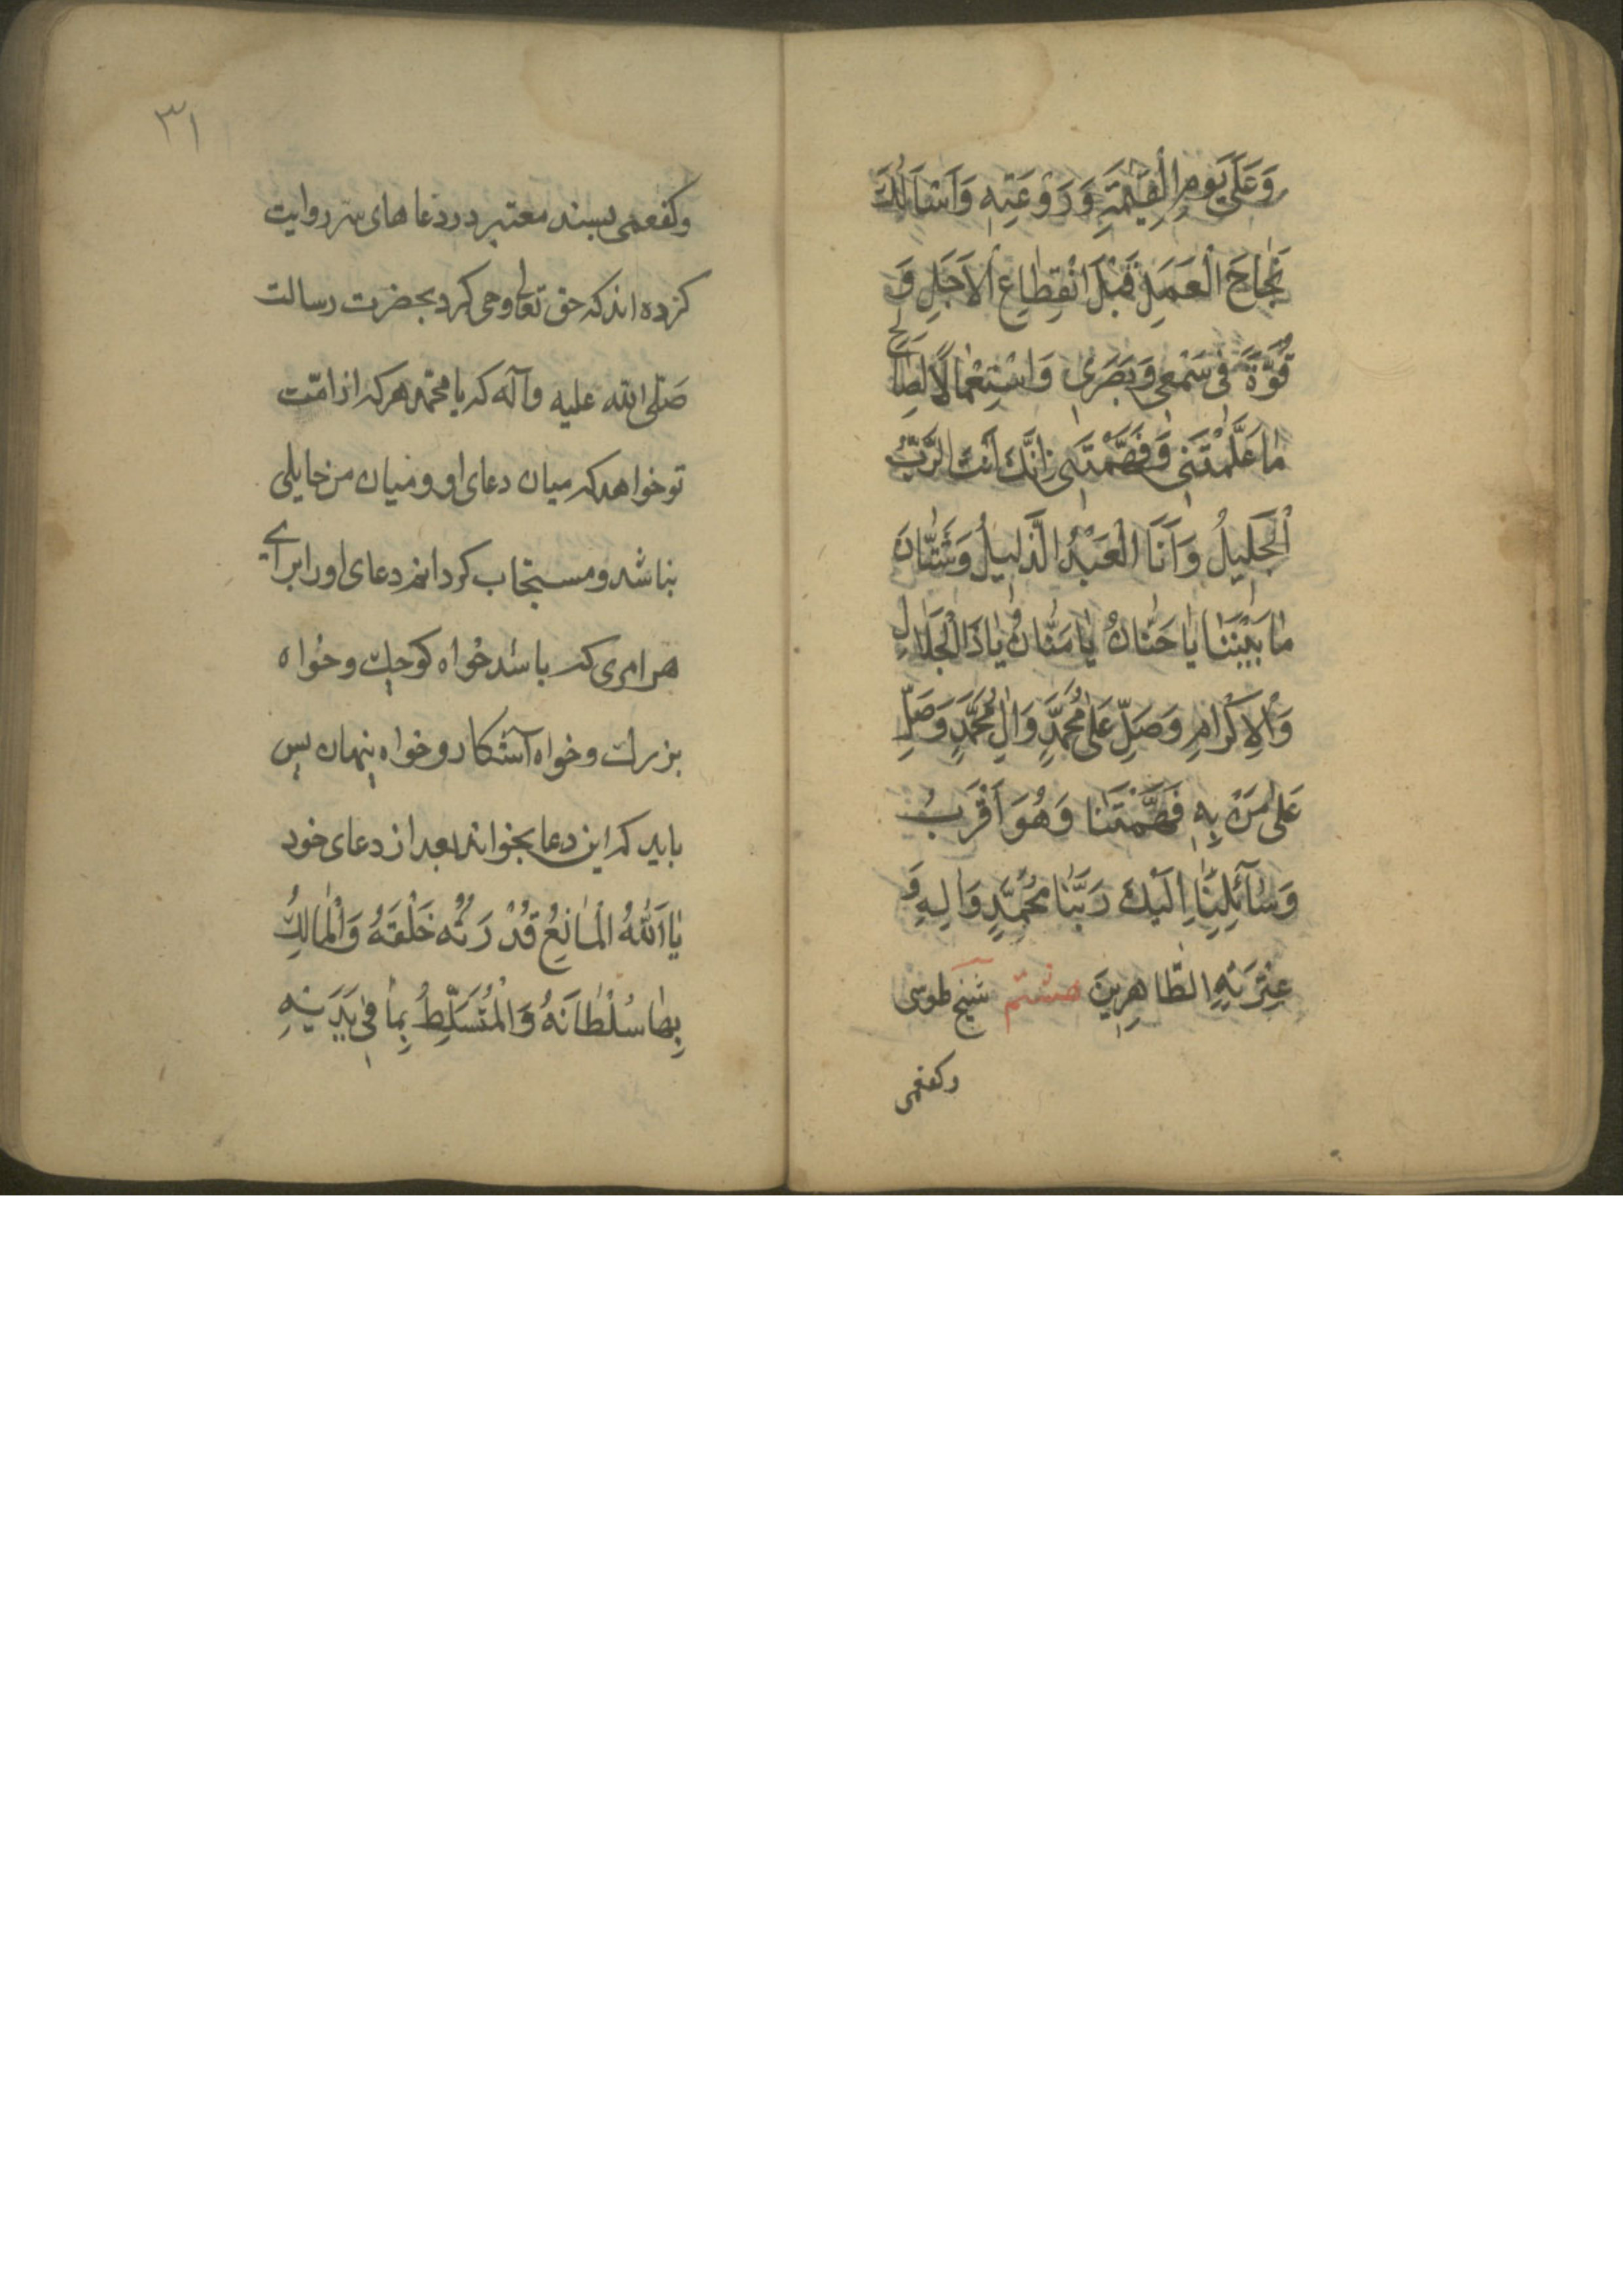 وَعَلىٰ يَوْمِ الْقِيٰمَةِ وَرَوْعَتِهِ وَاَسْاَلُكَ
نَجٰاحَ الْعَمَلِ قَبْلَ انْقِطٰاعِ الْاَجَلِ وَ
قُوَّةً فى سَمْعى وَبَصَرى وَاسْتِعْمٰالًا لِصٰالِحِ
مٰا عَلَّمْتَنى وَفَهَّمْتَنى اِنَّكَ اَنْتَ الرَّبُّ
الْجَليلُ وَاَنَا الْعَبْدُ الذَّليلُ وَشَتّٰانَ
مٰا بَيْنَنٰا يٰا حَنّٰانُ يٰا مَنّٰانُ يٰا ذَا الْجَلٰالِ
وَالْاِكْرٰامِ وَصَلِّ عَلىٰ مُحَمَّدٍ وَاٰلِ مُحَمَّدٍ وَصَلِّ
عَلىٰ مَنْ بِهِ فَهَّمْتَنٰا وَهُوَ اَقْرَبُ
وَسٰآئِلِنٰا اِلَيْكَ رَبَّنٰا مُحَمَّدٍ وَاٰلِهِ وَ
عِتْرَتِهِ الطّٰاهِرينَ هشتم شيخ طوسى
وكفعمى
٣١
وكفعمى بسند معتبر در دعا هاى سر روايت
كرده اند كه حق تعالى وحى كرد بحضرت رسالت
صَلّى الله عليه وآله كه يا محمّد هر كه از امّت
تو خواهد كه ميان دعاى او و ميان من حايلى
نباشد ومستجاب كردانم دعاى او را براى
هر امرى كه باشد خواه كوچك وخواه
بزرك وخواه آشكار وخواه پنهان پس
بايد كه اين دعا بخواند بعد از دعاى خود
يٰا اَللّٰهُ الْمٰانِعُ قُدْرَتُه خَلْقَهُ وَالْمٰالِكُ
بِهٰا سُلْطٰانَهُ وَالْمُتَسَلِّطُ بِمٰا فى يَدَيْهِ